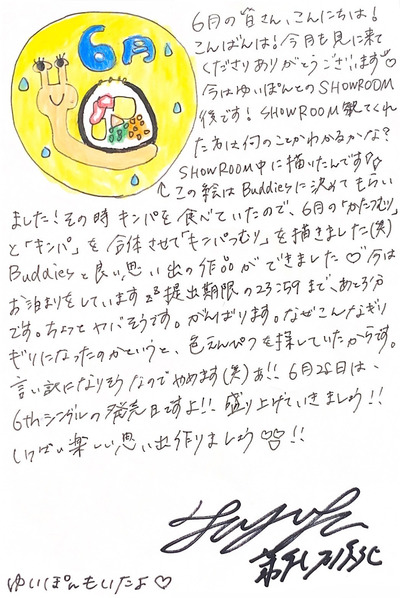 6月
6月の皆さん、こんにちは!
こんばんは!今月も見に来て
くださりありがとうございます♡
今はゆいぽんとのSHOWROOM
後です!SHOWROOM観てくれ
た方は何のことかわかるかな?
SHOWROOM中に描いたんです
この絵はBuddiesに決めてもらい
ました!その時キンパを食べていたので、6月の「かたつむり」
と「キンパ」を合体させて「キンパつむり」を描きました(笑)
Buddiesと良い思い出の作品ができました♡今は
お泊まりをしています💤提出期限の23:59まで、あと3分
です。ちょっとヤバそうです。がんばります。なぜこんなぎり
ぎりになったのかというと、色えんぴつを探していたからです。
言い訳になりそうなのでやめます(笑)あ!!6月26日は、
6thシングルの発売日ですよ!!盛り上げていきましょう!!
いっぱい楽しい思い出作りましょう♡♡!!
ゆいぽんもいたよ♡